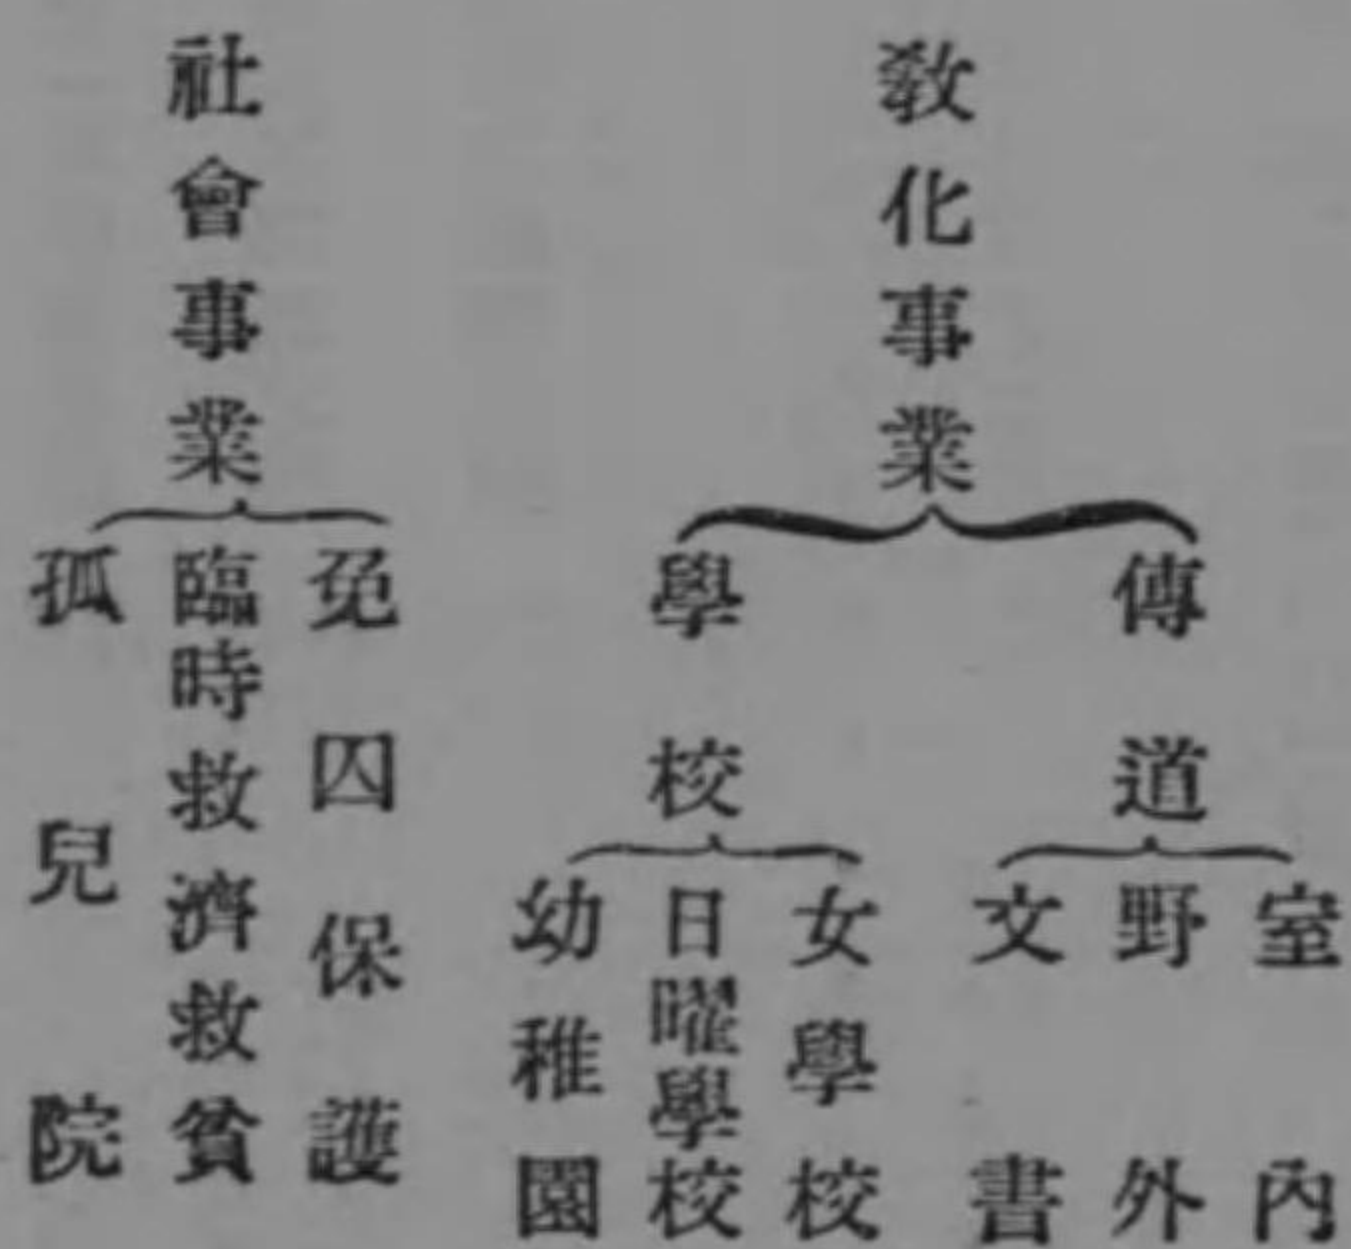 敎化事業
傳道
室內
野外
文書
學校
女學校
日曜學校
幼稚園
社會事業
免囚保護
臨時救濟救貧
孤兒院